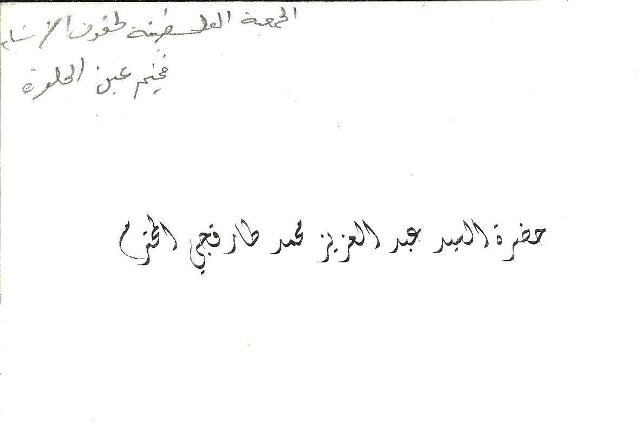 الجمعية الفلسطينية لحقوق الإنسان
مخيم عين الحلوة
حضرة السيد عبد العزيز محمد طارقجي المحترم